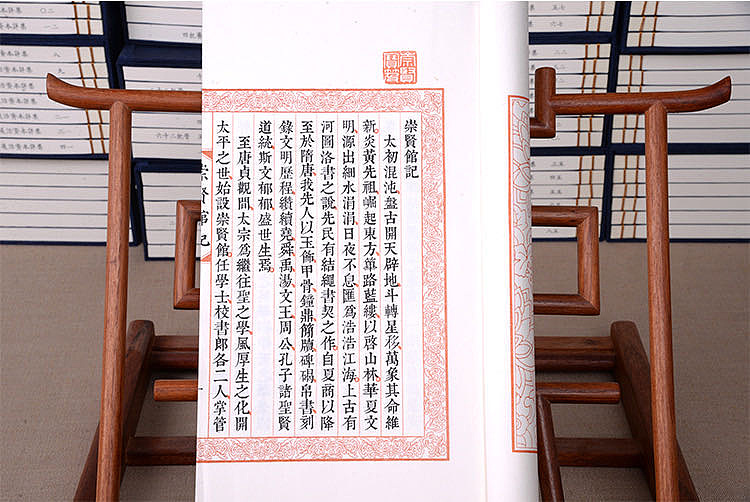 崇賢館記
太初混沌盤古開天辟地斗轉星移萬象其命維
新炎黃先祖崛起東方篳路藍縷以啓山林華夏文
明源出細水涓涓日夜不息匯爲浩浩江海上古有
河圖洛書之說先民有結繩書契之作自夏商以降
至於隋唐我先人以玉飾甲骨鐘鼎簡牘碑碣帛書刻
錄文明歷程纘續堯舜禹湯文王周公孔子諸聖賢
道統斯文郁郁盛世生焉
至唐貞觀間太宗爲繼往聖之學風厚生之化開
太平之世始設崇賢館任學士校書郎各二人掌管
崇賢館記